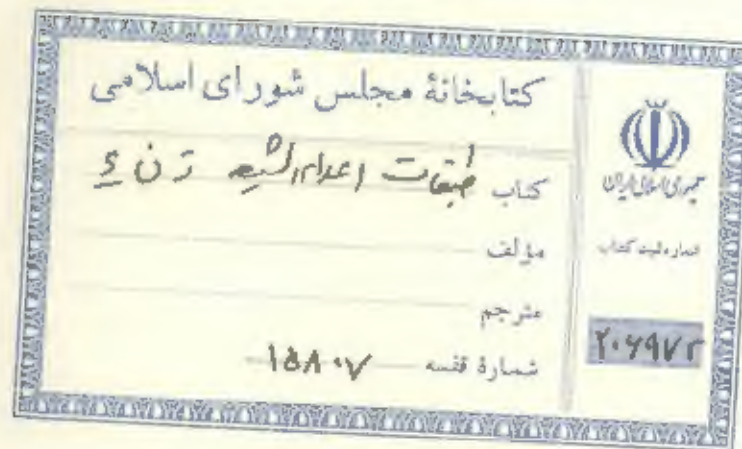 کتابخانهٔ مجلس شورای اسلامی
کتاب طبقات اعلام الشیعه ق ن ٤
مؤلف
مترجم
شمارهٔ قفسه ۱۵۸۰۷
جمهوری اسلامی ایران
شماره ثبت کتاب
۲۰۶۹۷۲